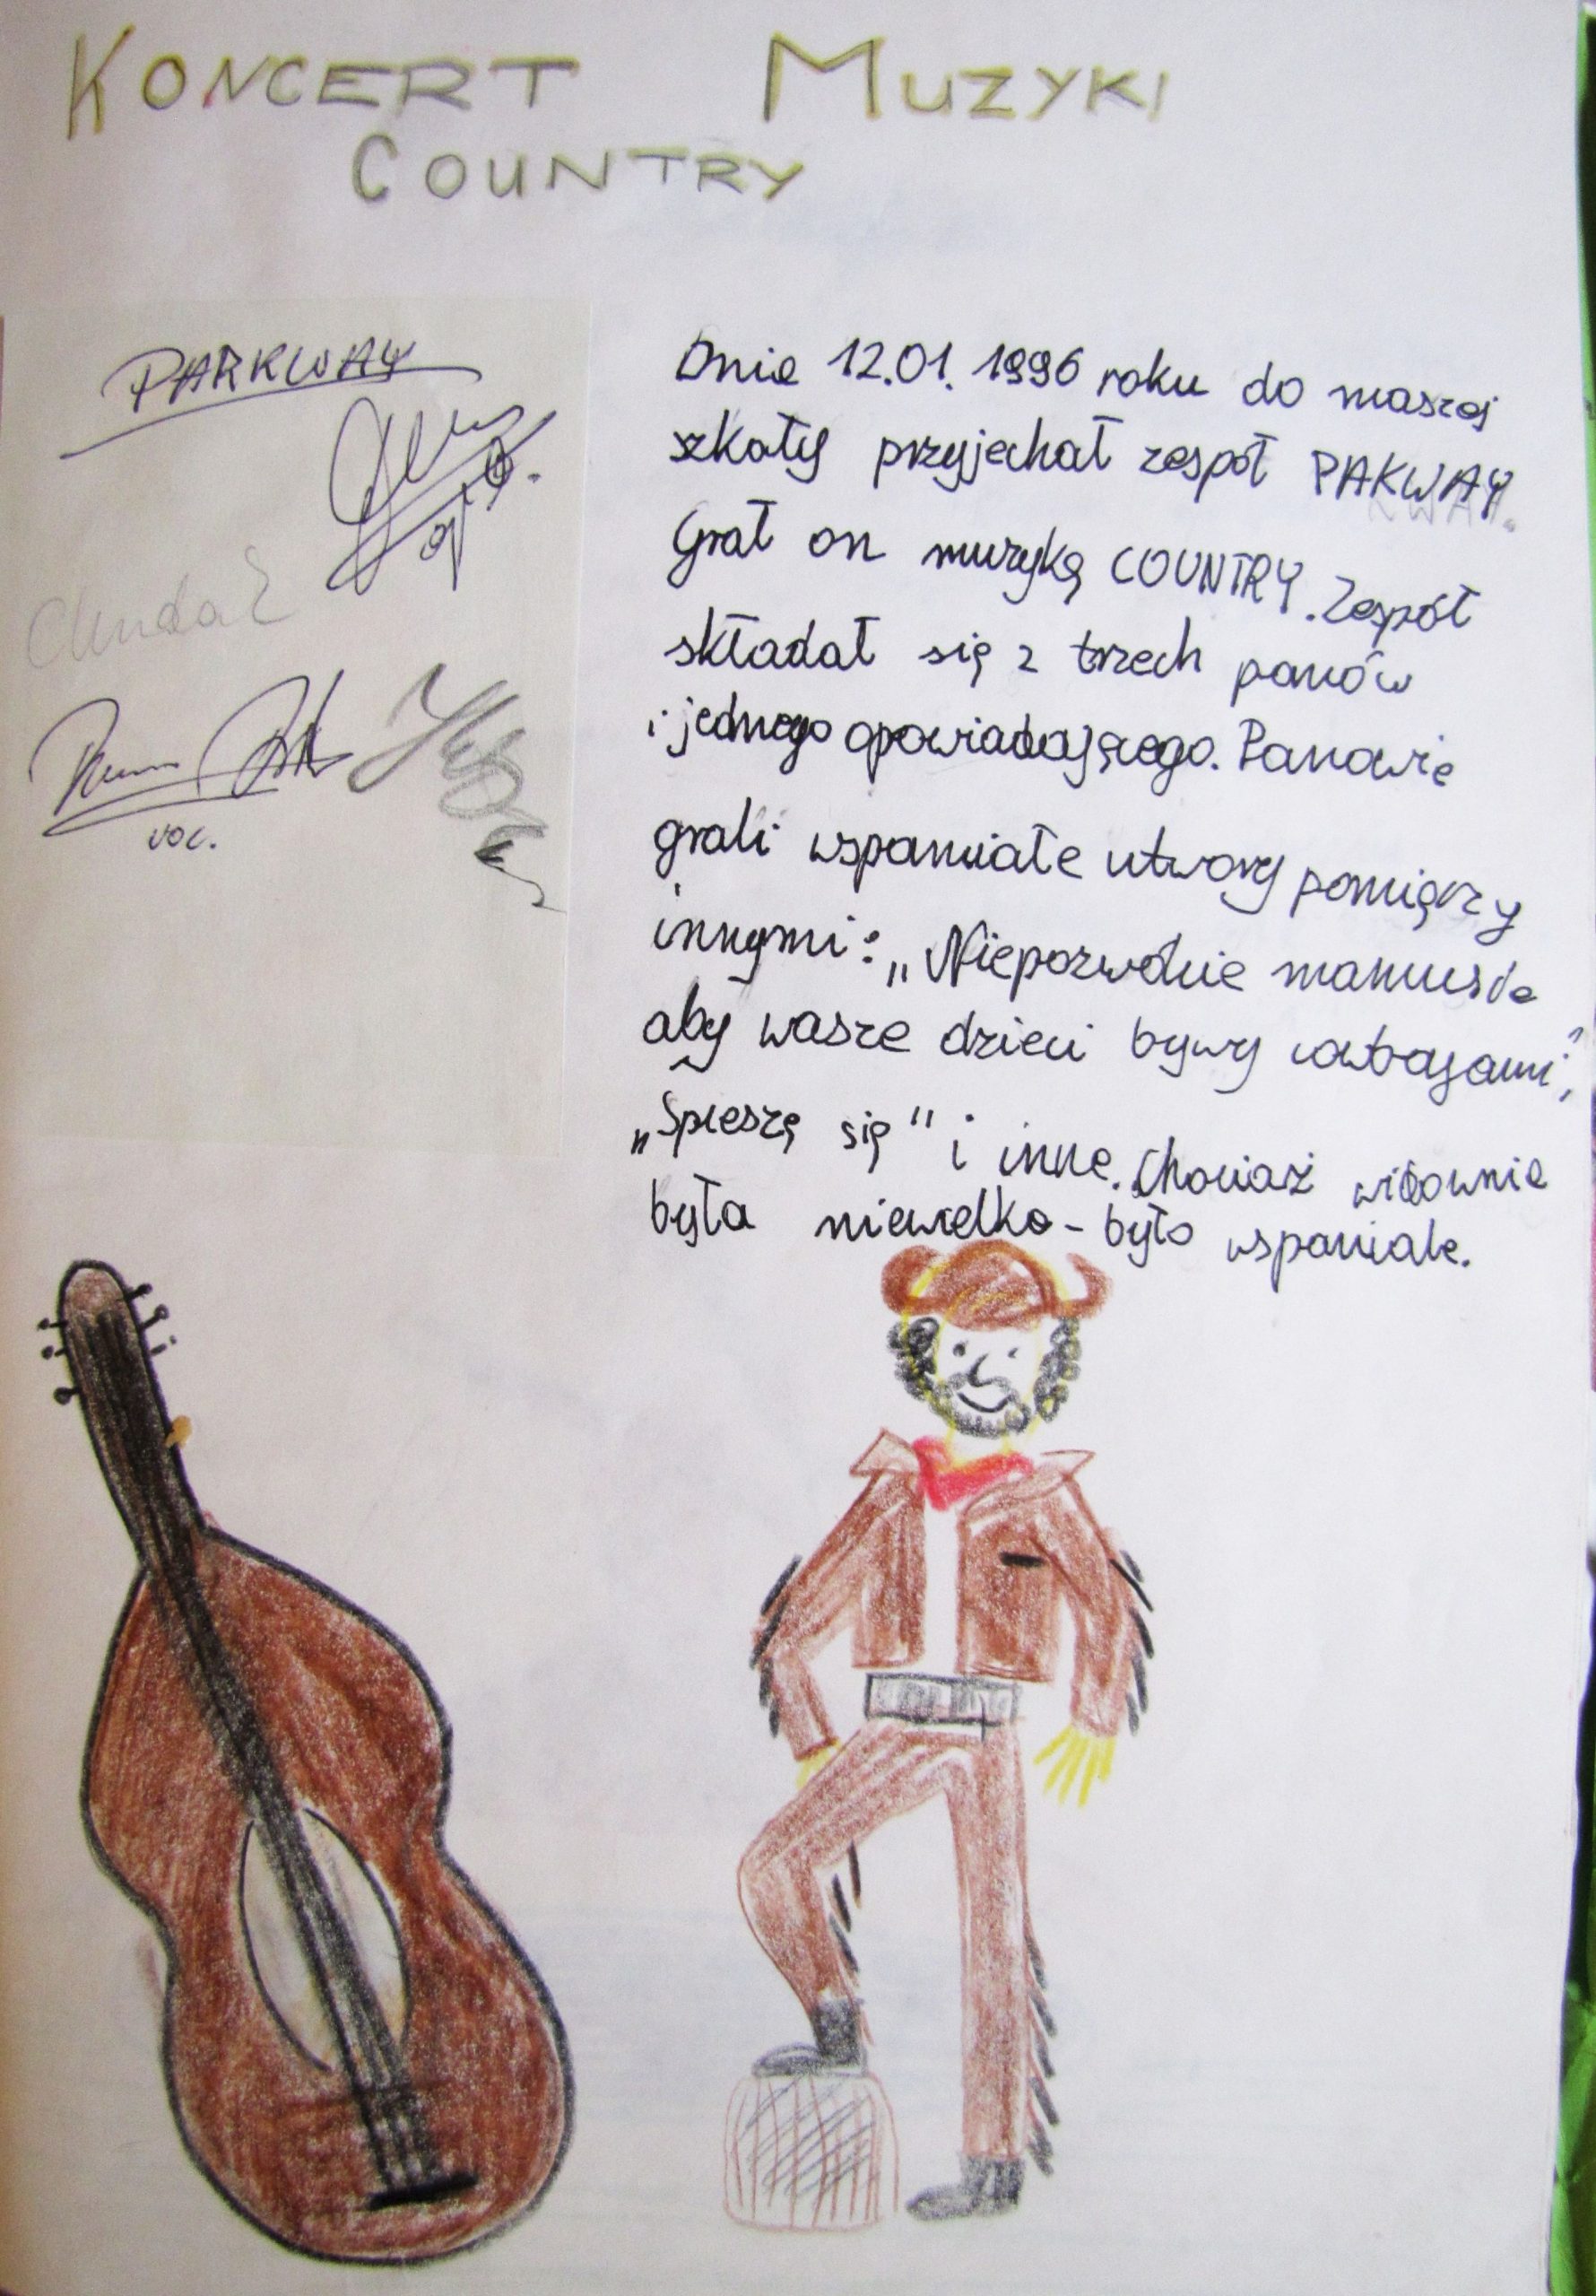 KONCERT MUZYKI
COUNTRY
PARKWAY
voc.
Dnie 12.01.1996 roku do naszej
szkoły przyjechał zespół PAKWAY.
Grał on muzykę COUNTRY. Zespół
składał się z trzech panów
i jednego opowiadającego. Panowie
grali wspaniałe utwory pomięrzy
innymi: „Niepozwólcie mamusie
aby wasze dzieci bywy cowbojami",
„Spieszę się" i inne. Chociaż widownie
była niewielka - było wspaniale.